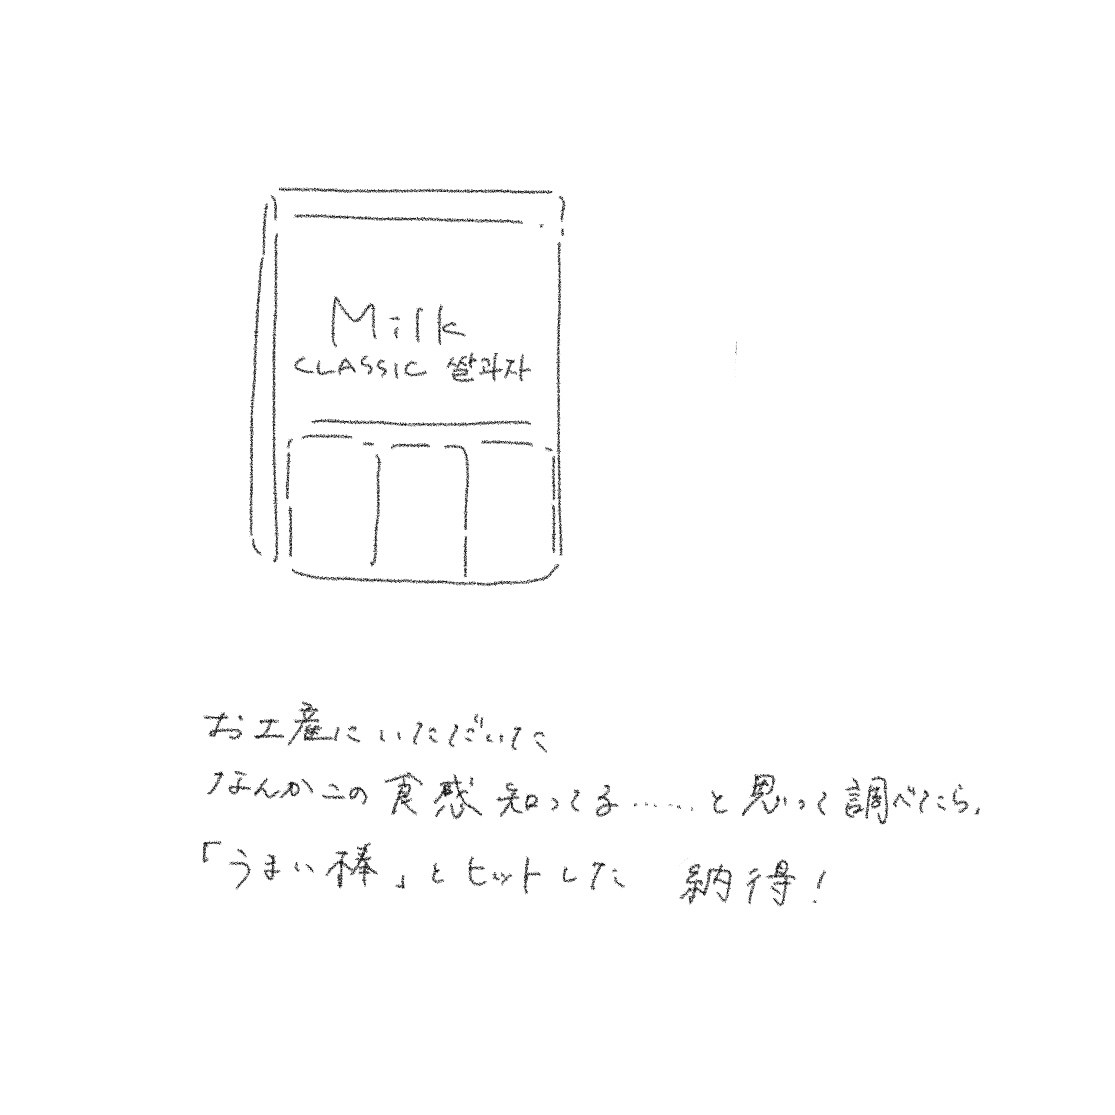 Milk
CLASSIC 쌀과자
お土産にいただいた
なんかこの食感知ってる……と思って調べたら、
「うまい棒」とヒットした 納得！